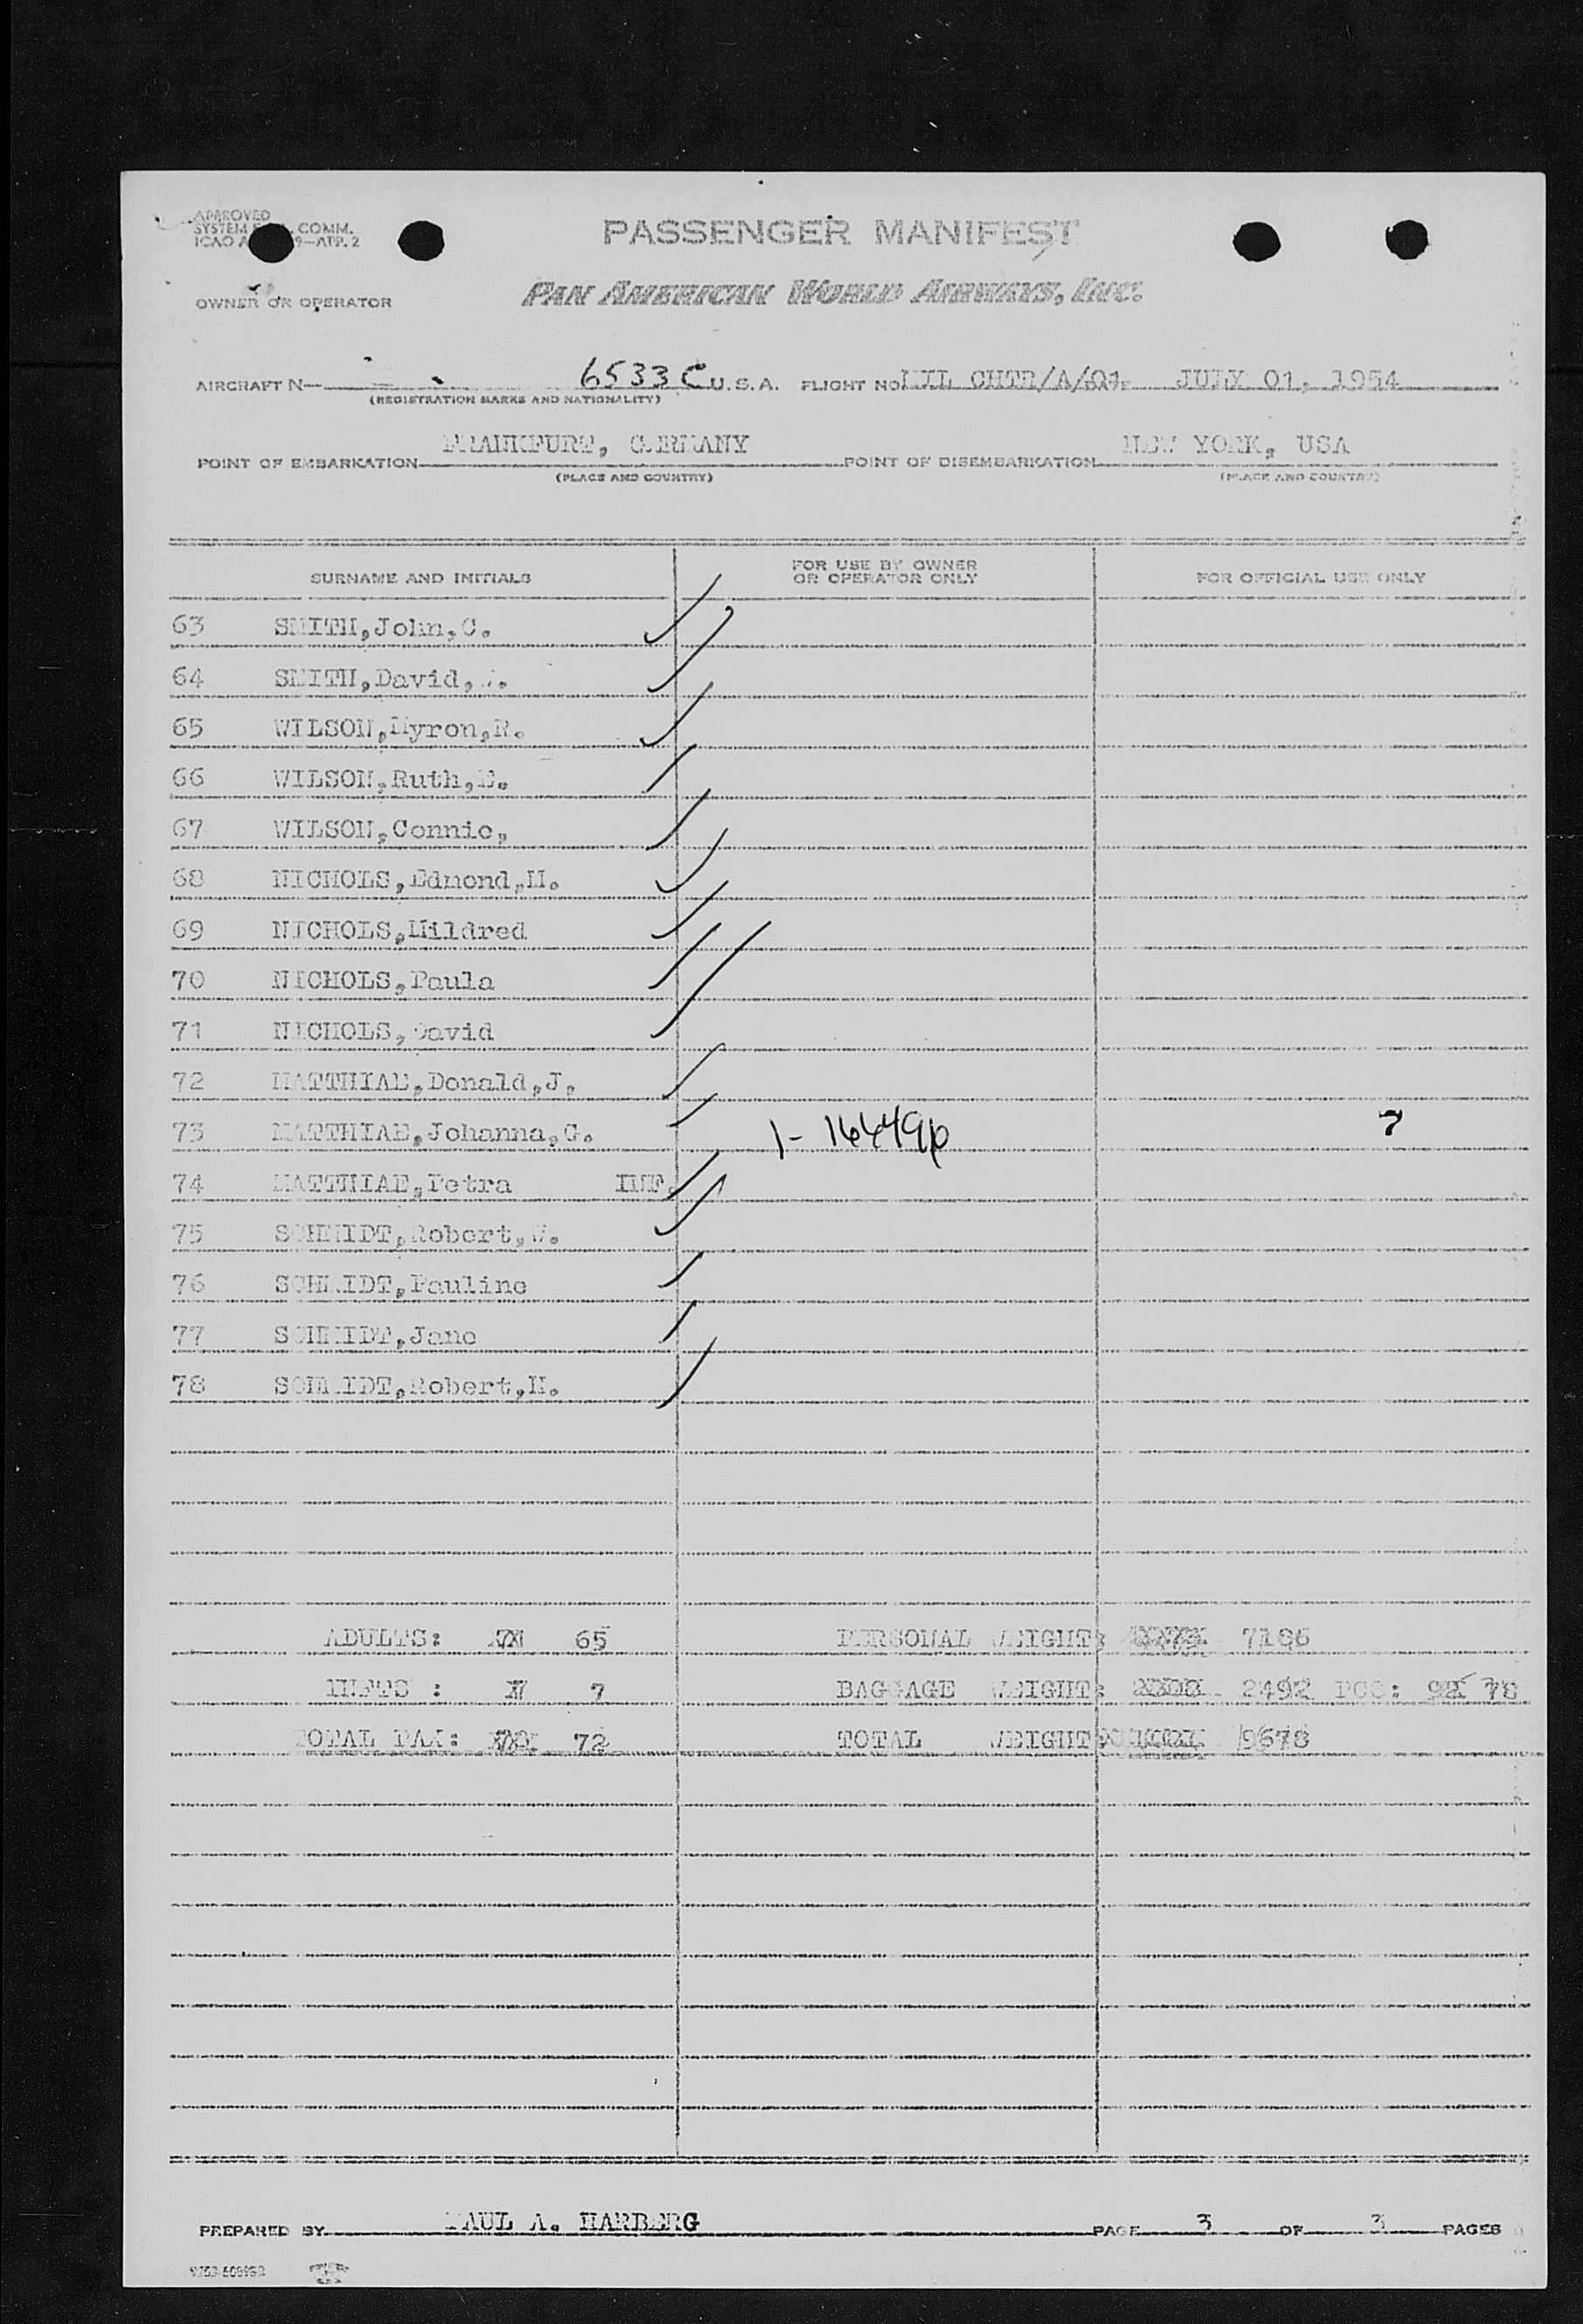 APPROVED
SYSTEM COMM.
ICAO 9—APP. 2
PASSENGER MANIFEST
OWNER OR OPERATOR
PAN AMERICAN WORLD AIRWAYS, INC.
AIRCRAFT N— 6533C U. S. A. FLIGHT NO MIL CHTR/A/01 JULY 01, 1954
(REGISTRATION MARKS AND NATIONALITY)
POINT OF EMBARKATION FRANKFURT, GERMANY POINT OF DISEMBARKATION NEW YORK, USA
(PLACE AND COUNTRY) (PLACE AND COUNTRY)
SURNAME AND INITIALS FOR USE BY OWNER OR OPERATOR ONLY FOR OFFICIAL USE ONLY
63 SMITH,John,C.
64 SMITH,David,
65 WILSON,Myron,R.
66 WILSON,Ruth,E.
67 WILSON,Connie,
68 NICHOLS,Edmond,M.
69 NICHOLS,Mildred
70 NICHOLS,Paula
71 NICHOLS,David
72 MATTHIAE,Donald,J.
73 MATTHIAE,Johanna,G. 1-
74 MATTHIAE,Petra INF.
75 SCHMIDT,Robert,W.
76 SCHMIDT,Pauline
77 SCHMIDT,Jane
78 SCHMIDT,Robert,H.
ADULTS: 65 PERSONAL WEIGHT: 7186
INFTS : 7 BAGGAGE WEIGHT: 2492 PCS: 78
TOTAL PAX: 72 TOTAL WEIGHT 9678
PREPARED BY PAUL A. HARBERG PAGE 3 OF 3 PAGES